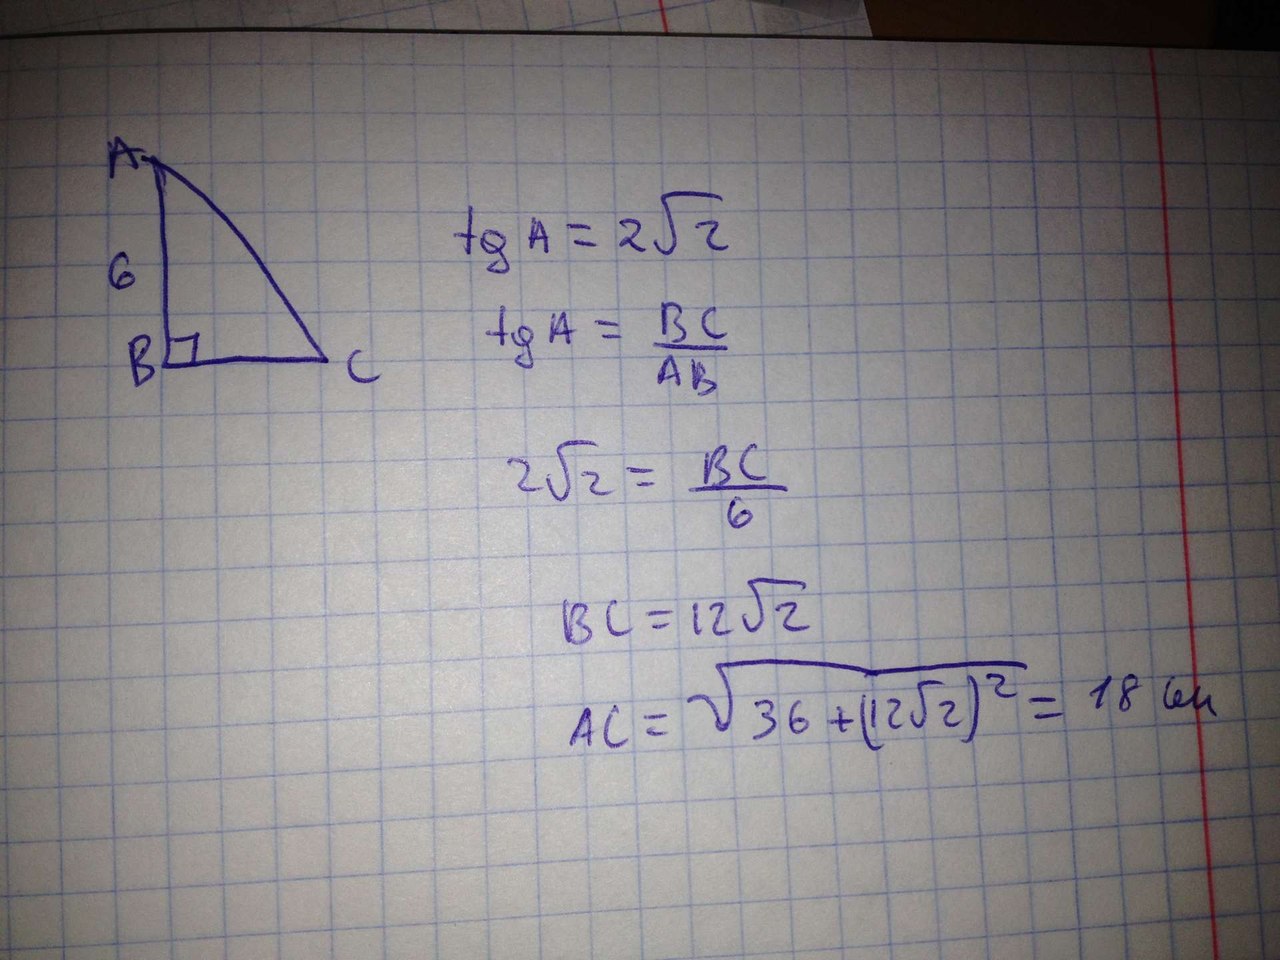 A
6
B
C
tg A = 2√2
tg A = BC/AB
2√2 = BC/6
BC = 12√2
AC = √(36 + (12√2)²) = 18 см